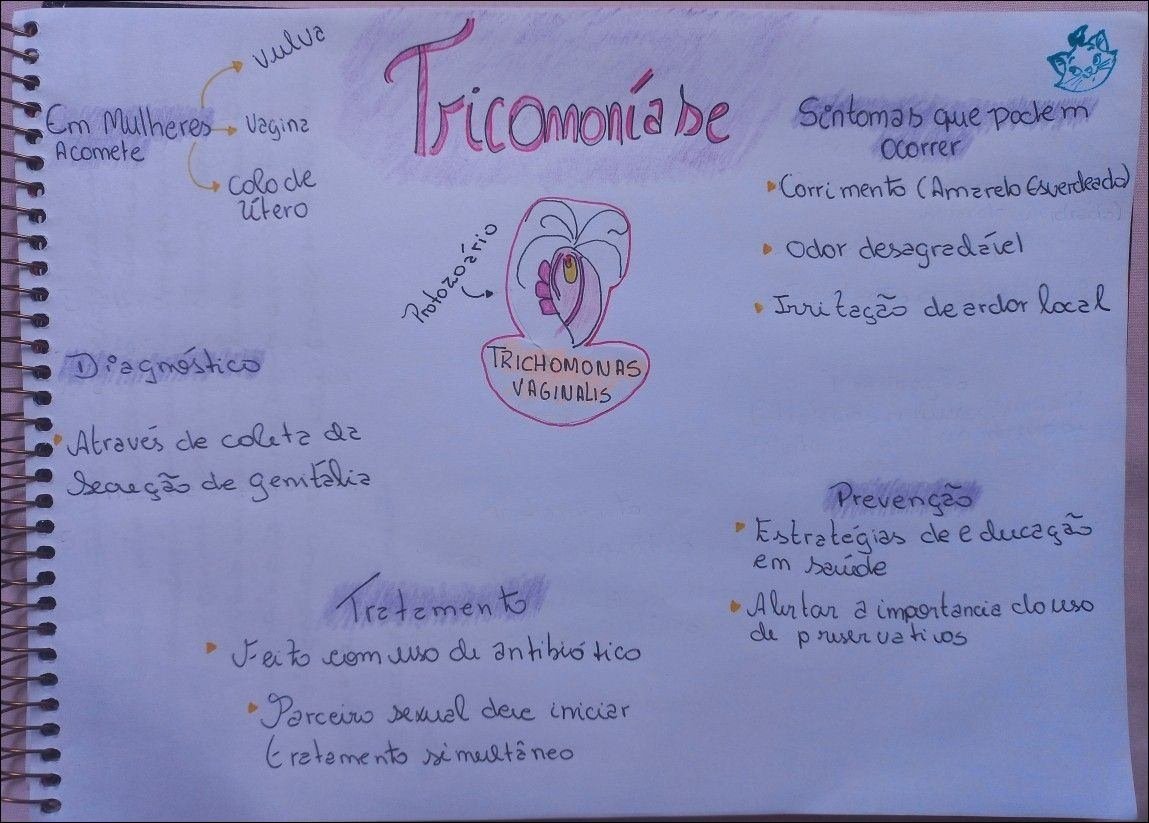 Tricomoníase
Em Mulheres
Acomete
Vulva
Vagina
Colo de
Útero
Sintomas que podem
ocorrer
Corrimento (Amarelo Esverdeado)
Odor desagradáiel
Irritação de ardor local
Protozoário
TRICHOMONAS
VAGINALIS
Diagnóstico
Através de coleta da
Secreção de genitália
Prevenção
Estratégias de educação
em saúde
Alertar a importancia do uso
de preservativos
Tratamento
Feito com uso de antibiótico
Parceiro sexual deve iniciar
tratamento simultâneo